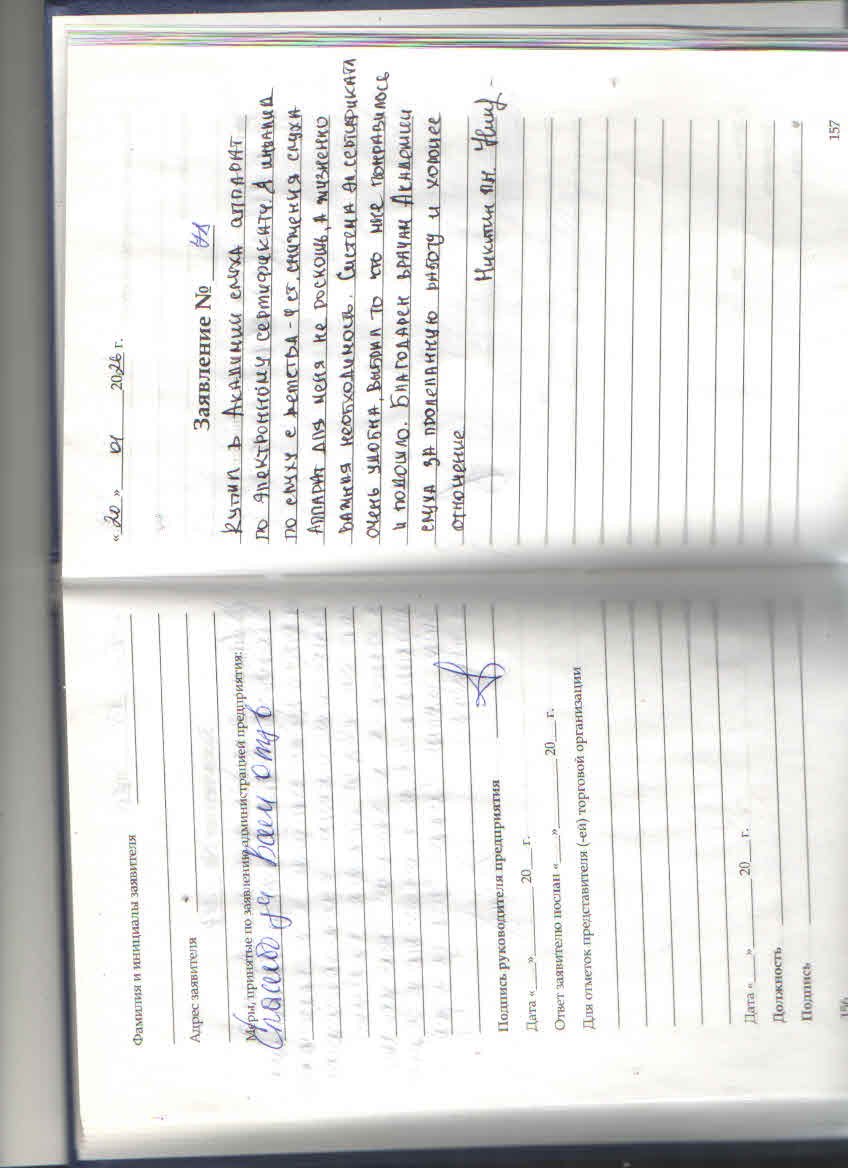 Фамилия и инициалы заявителя
Адрес заявителя
Меры, принятые по заявлению администрацией предприятия:
Спасибо за Ваш отзыв
Подпись руководителя предприятия
Дата «___»________ 20___ г.
Ответ заявителю послан «___»________ 20___ г.
Для отметок представителя (-ей) торговой организации
Дата «___»________ 20___ г.
Должность
Подпись
156
«20» 01 2026 г.
Заявление №
Купил в Академии слуха аппарат
по электронному сертификату. Я инвалид
по слуху с детства - 4 ст. снижения слуха
Аппарат для меня не роскошь, а жизненно
важная необходимость. Система эл сертификата
очень удобна, выбрал то что мне понравилось
и подошло. Благодарен врачам Академии
слуха за проделанную работу и хорошее
отношение
Никитин
157